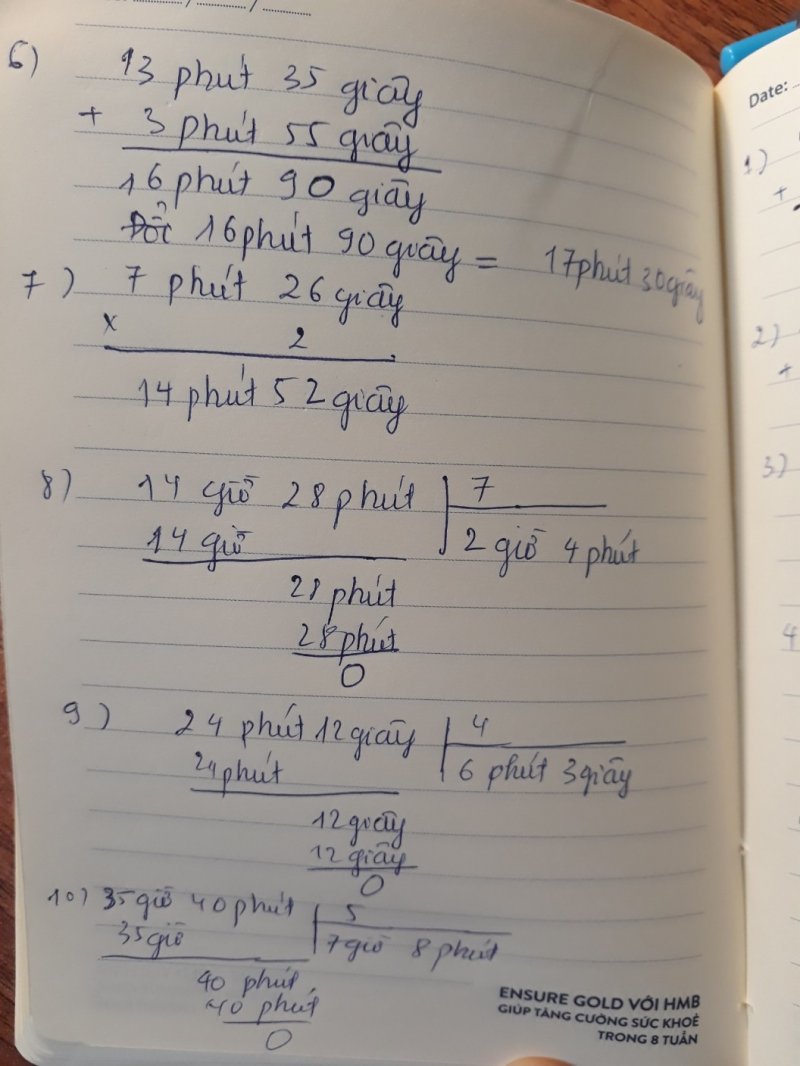 6) 13 phút 35 giây
+ 3 phút 55 giây
16 phút 90 giây
Đổi 16 phút 90 giây = 17 phút 30 giây
7) 7 phút 26 giây
x 2
14 phút 52 giây
8) 14 giờ 28 phút 7
14 giờ 2 giờ 4 phút
28 phút
28 phút
0
9) 24 phút 12 giây 4
24 phút 6 phút 3 giây
12 giây
12 giây
0
10) 35 giờ 40 phút 5
35 giờ 7 giờ 8 phút
40 phút
40 phút
0
ENSURE GOLD VỚI HMB
GIÚP TĂNG CƯỜNG SỨC KHOẺ
TRONG 8 TUẦN
Date:
1)
+
2)
+
3)
4